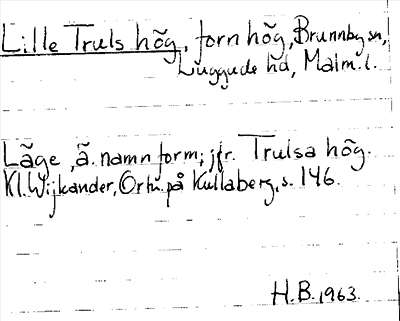 Lille Truls hög, forn hög, Brunnby sn,
Luggude hd, Malm. l.
Läge, ä. namnform; jfr. Trulsa hög.
Kl. Wijkander, Ortn. på Kullaberg, s. 146.
H.B. 1963.